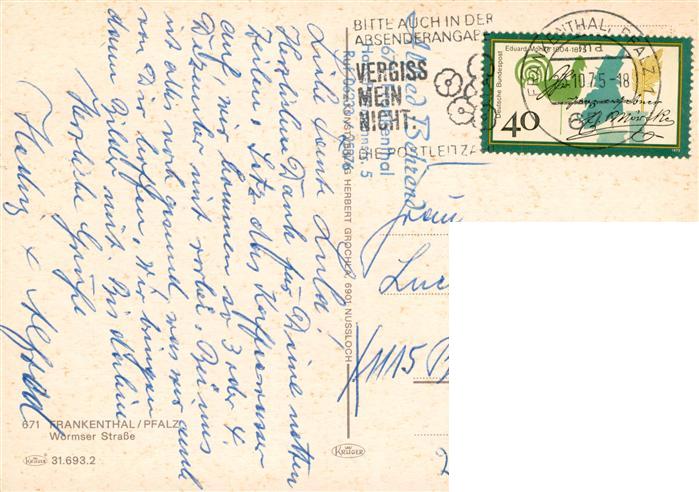 BITTE AUCH IN DER
ABSENDERANGABE
VERGISS
MEIN
NICHT:
DIE POSTLEITZA
FRANKENTHAL, PFALZ
10.75-18
Eduard Mörike 1804-1875
Deutsche Bundespost
40
Liebe Tante Lula!
Herzlichen Dank für Deine netten
Zeilen. Setz das Kaffeewasser
auf, wir kommen so 3 oder 4.
Dezember mit vorbei. Bei uns
ist alles gesund was wir auch
von Dir hoffen, wir bringen
dann Bilder mit. Bis dahin
Herzliche Grüße
Alfred
Frau
1115
VERLAG HERBERT GROCHE, 6901 NUSSLOCH
671 FRANKENTHAL/PFALZ
Wormser Straße
KRÜGER 31.693.2
KRÜGER